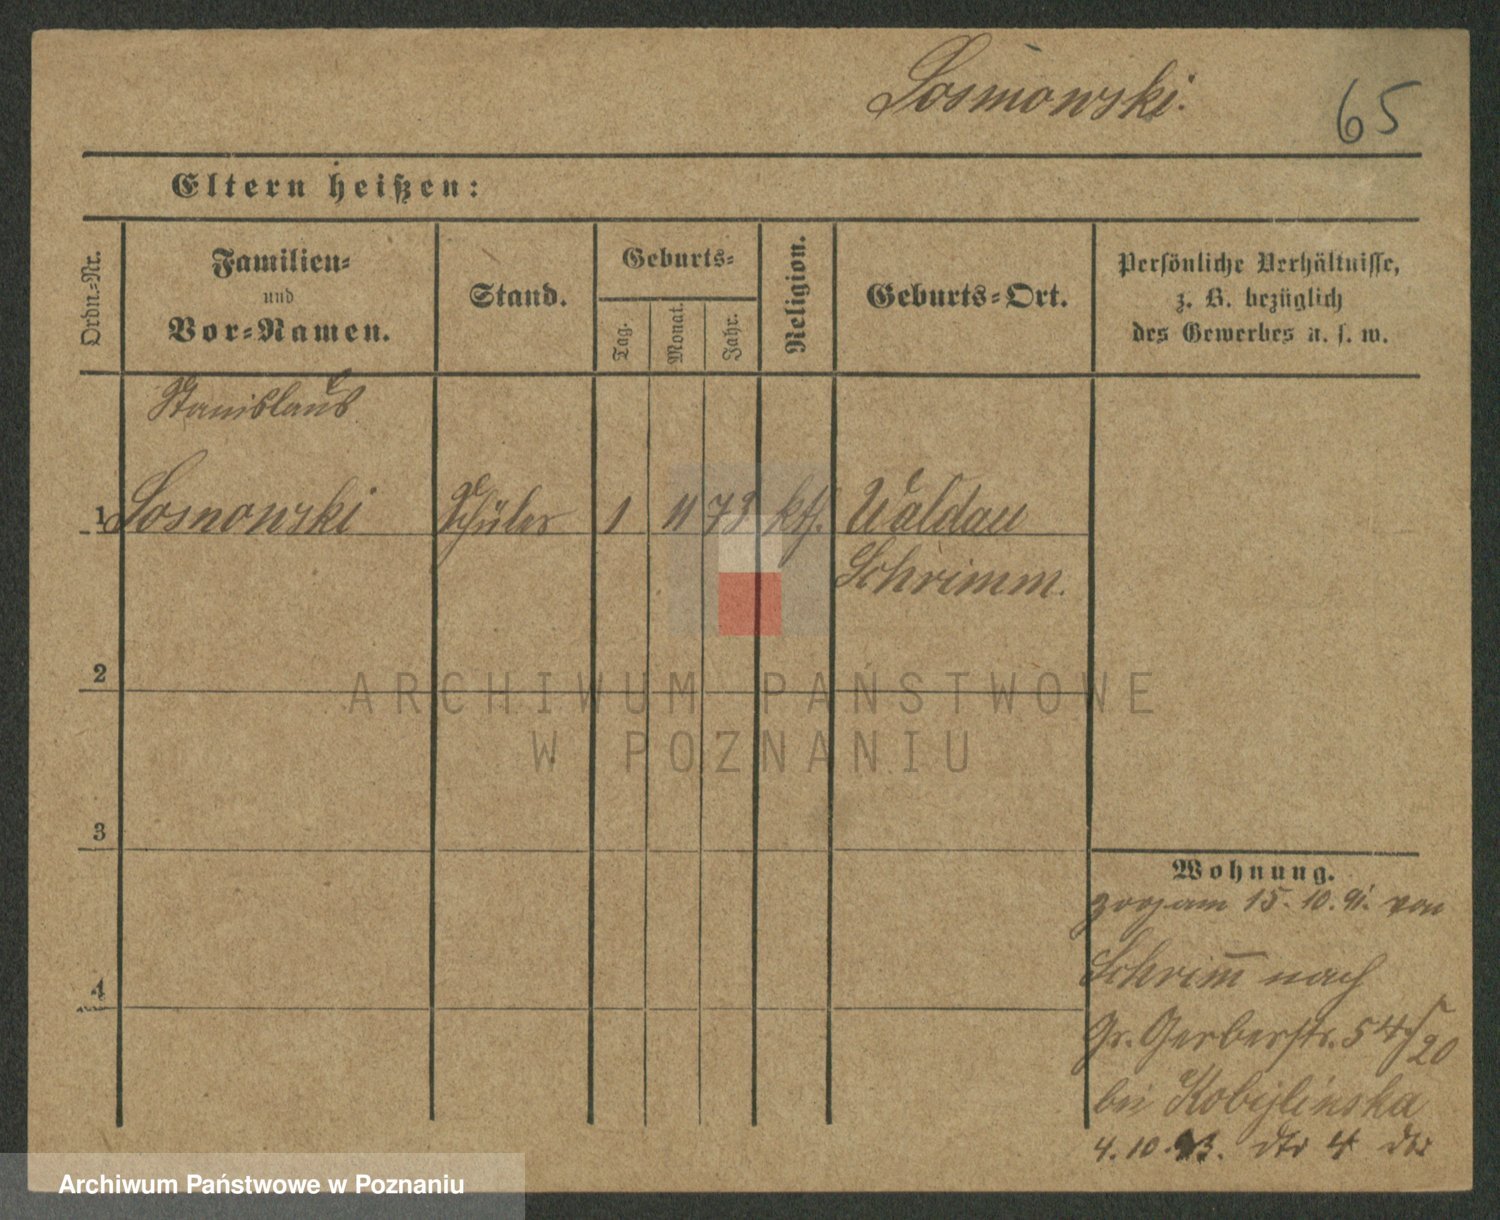 Sosnowski.
65
Eltern heißen:
Ordn.-Nr.
Familien-
und
Vor-Namen.
Stand.
Geburts-
Tag.
Monat.
Jahr.
Religion.
Geburts-Ort.
Persönliche Verhältnisse,
z. B. bezüglich
des Gewerbes u. s. w.
Stanislaus
1 Sosnowski Schüler 1 11 73 kth. Waldau
Schrimm.
2
3
4
Wohnung.
zog am 15. 10. 91. von
Schrim̅ nach
Gr. Gerberstr. 54/20
bei Kobylinska
4. 10. 93. 4
ARCHIWUM PAŃSTWOWE
W POZNANIU
Archiwum Państwowe w Poznaniu